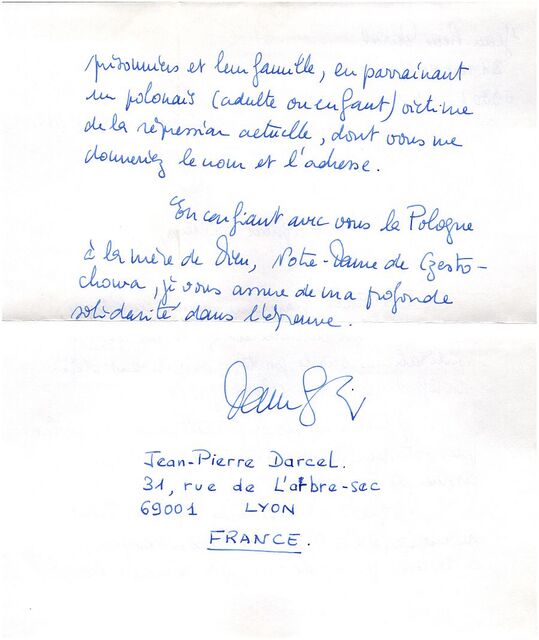 prisonniers et leur famille, en parrainant
un polonais (adulte ou enfant) victime
de la répression actuelle, dont vous me
donneriez le nom et l'adresse.
En confiant avec vous la Pologne
à la mère de Dieu, Notre-Dame de Czesto-
chowa, je vous assure de ma profonde
solidarité dans l'épreuve.
Jean-Pierre Darcel.
31, rue de L'arbre-sec
69001 LYON
FRANCE.